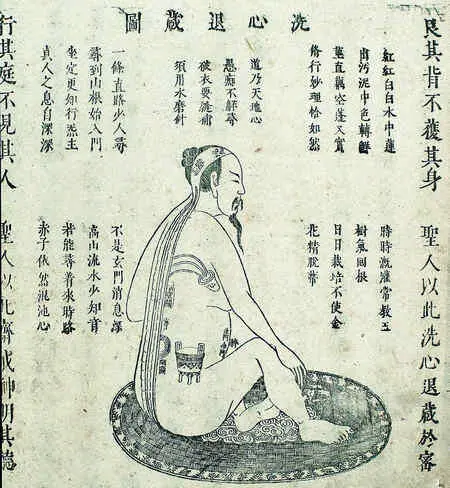 洗心退藏圖
艮其背不獲其身
聖人以此洗心退藏於密
紅紅白白水中蓮
出污泥中色轉鮮
莖直藕空蓬又實
修行妙理恰如然
道乃天地心
愚痴不解尋
破衣要線補
須用水磨針
一條直路少人尋
尋到山根始入門
坐定更知行炁主
真人之息自深深
時時溉灌常教玉
樹氣回根
日日栽培不使金
花精脫蒂
不是玄門消息深
高山流水少知音
若能尋着來時路
赤子依然混沌心
行其庭不見其人
聖人以此齋戒神明其德